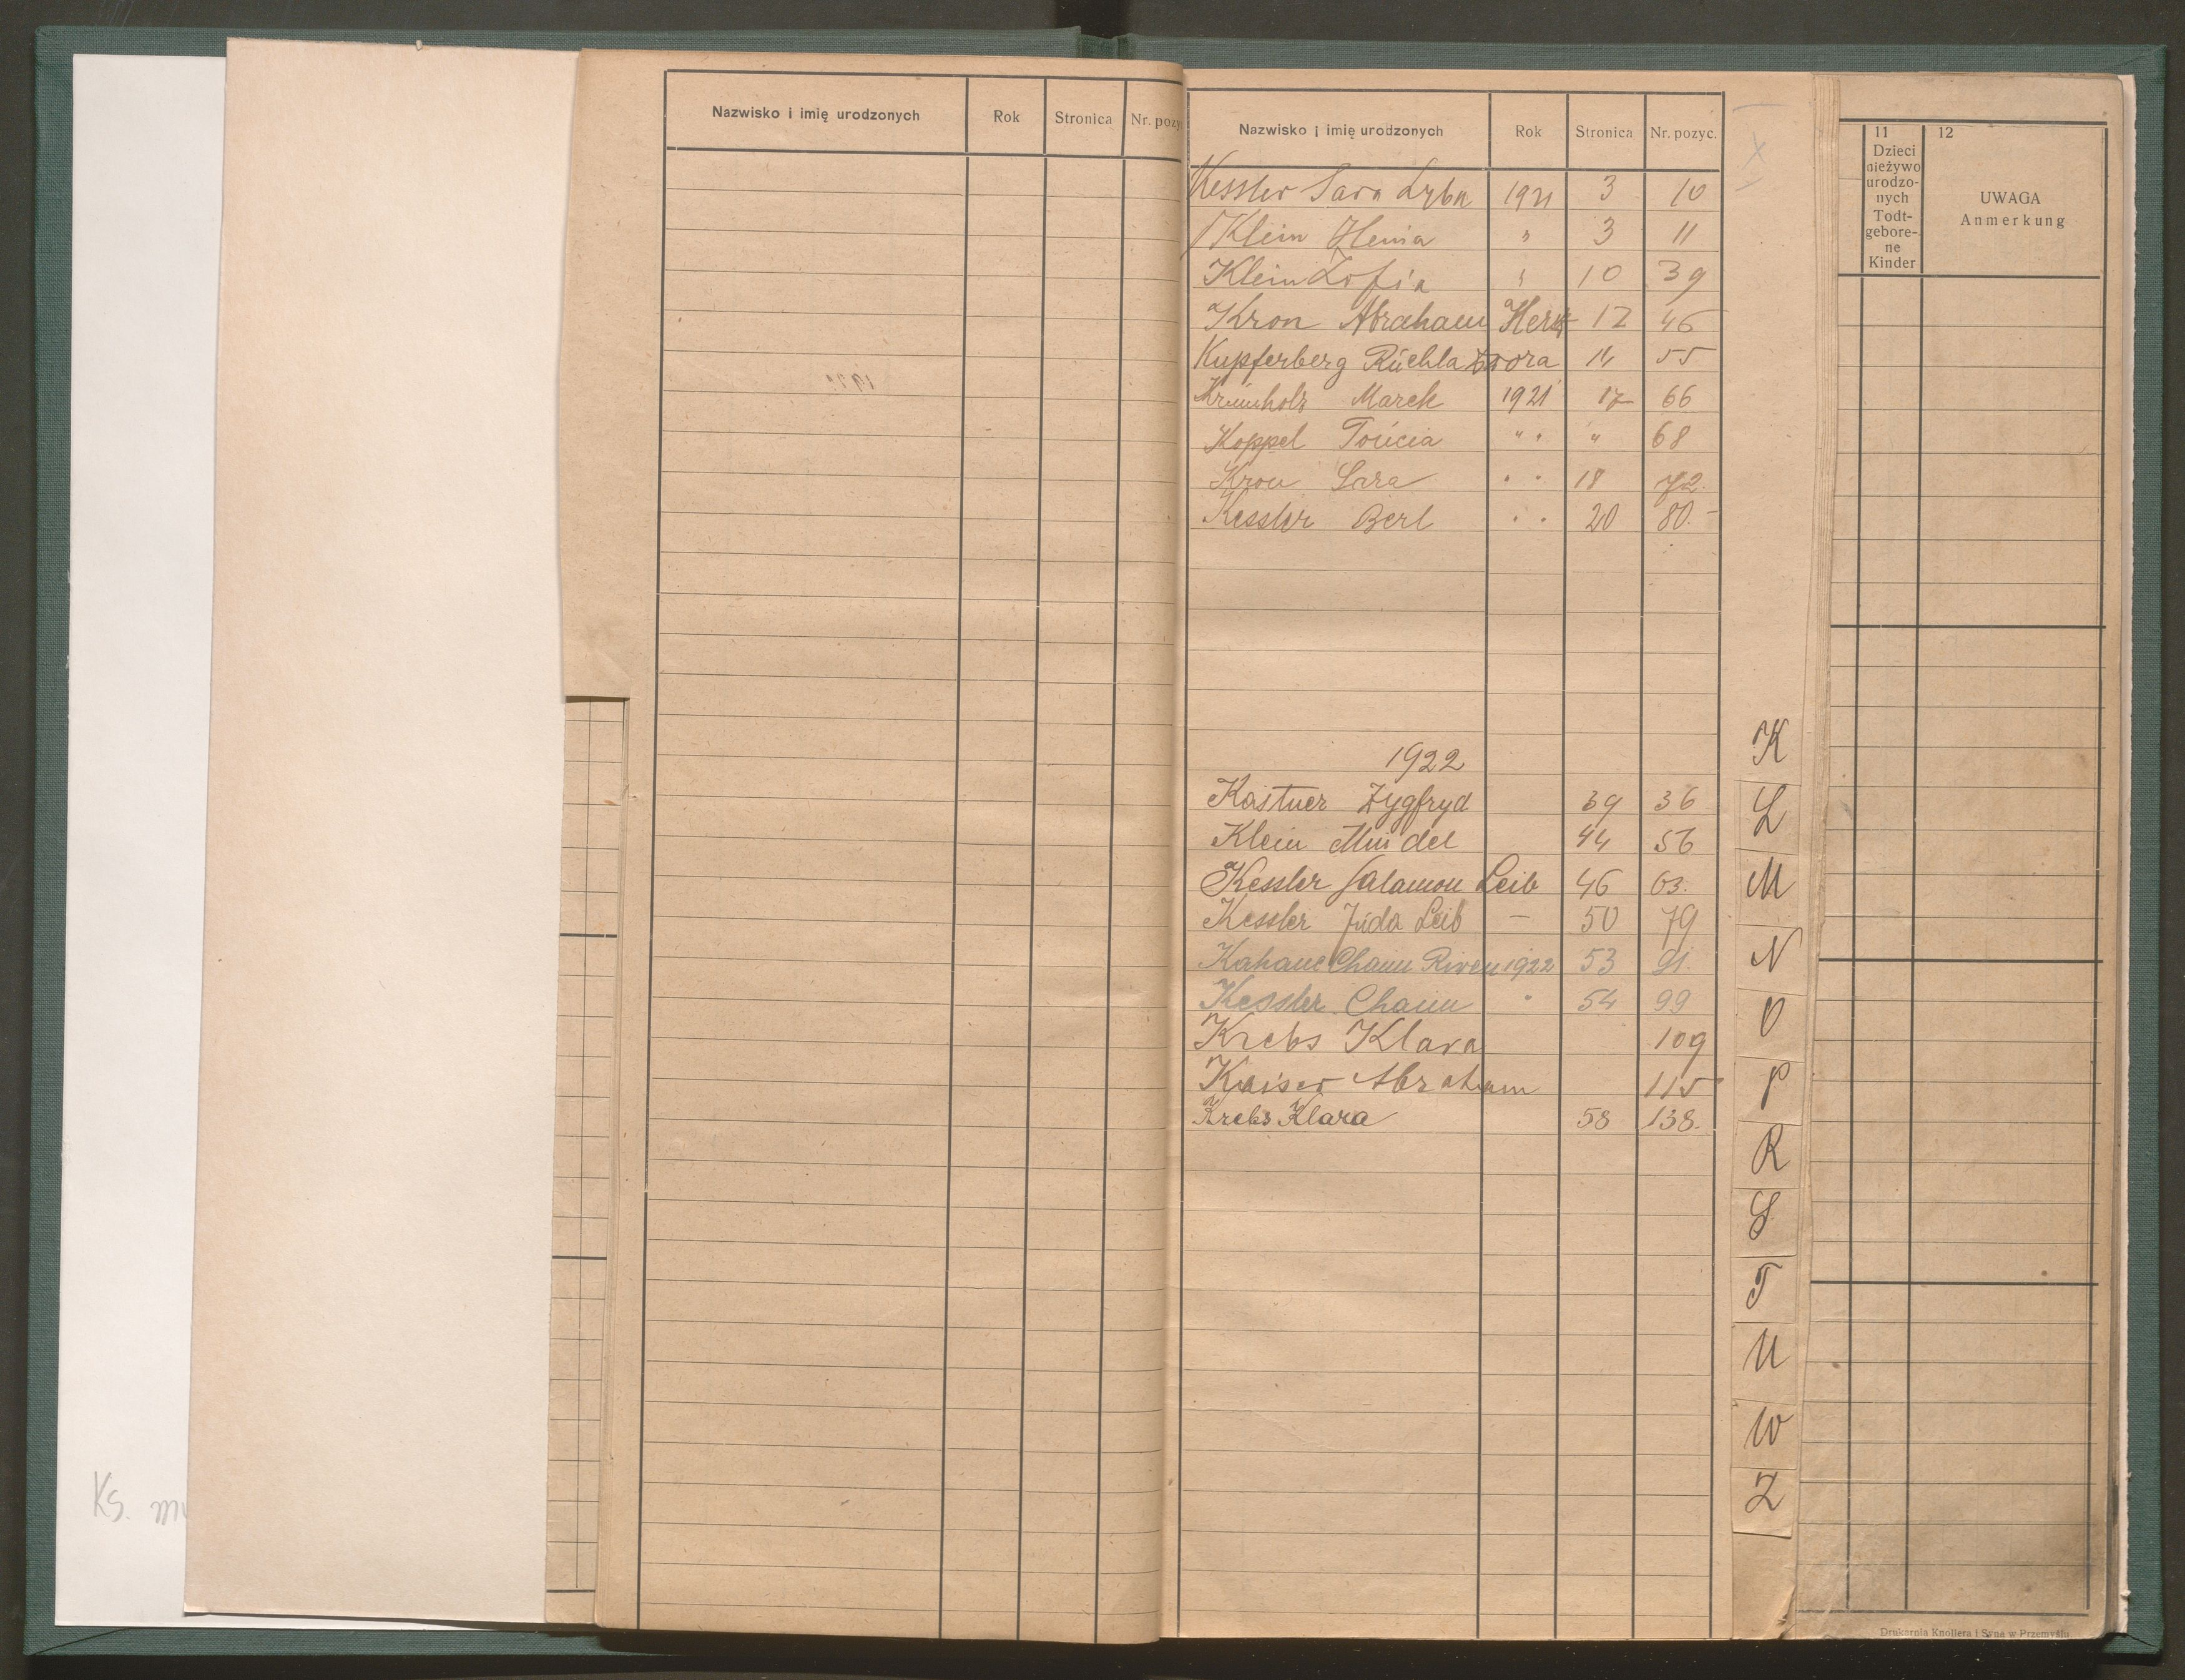 Nazwisko i imię urodzonych Rok Stronica Nr. pozy
Nazwisko i imię urodzonych Rok Stronica Nr. pozyc.
Kessler Sara 1921 3 10
Klein Henia " 3 11
Klein Zofia " 10 39
Kron Abraham Hersz 12 46
Kupferberg Ruchla Dwora 14 55
Krumholz Marek 1921 17 66
Koppel Tońcia " " " 68
Kron Sara " " 18 72.
Kessler Berl " " 20 80.
1922
Kastner Zygfryd 39 36
Klein Mindel 44 56
Kessler Salamon Leib 46 63.
Kessler Juda Leib — 50 79
Kahane Chaim 1922 53 91.
Kessler Chaim " 54 99
Krebs Klara 109
Kaiser Abraham 115
Krebs Klara 58 138.
K
L
M
N
O
P
R
S
T
U
W
Z
11
Dzieci
nieżywo
urodzo-
nych
Todt-
gebore-
ne
Kinder
12
UWAGA
Anmerkung
Drukarnia Knollera i Syna w Przemyślu
Ks.